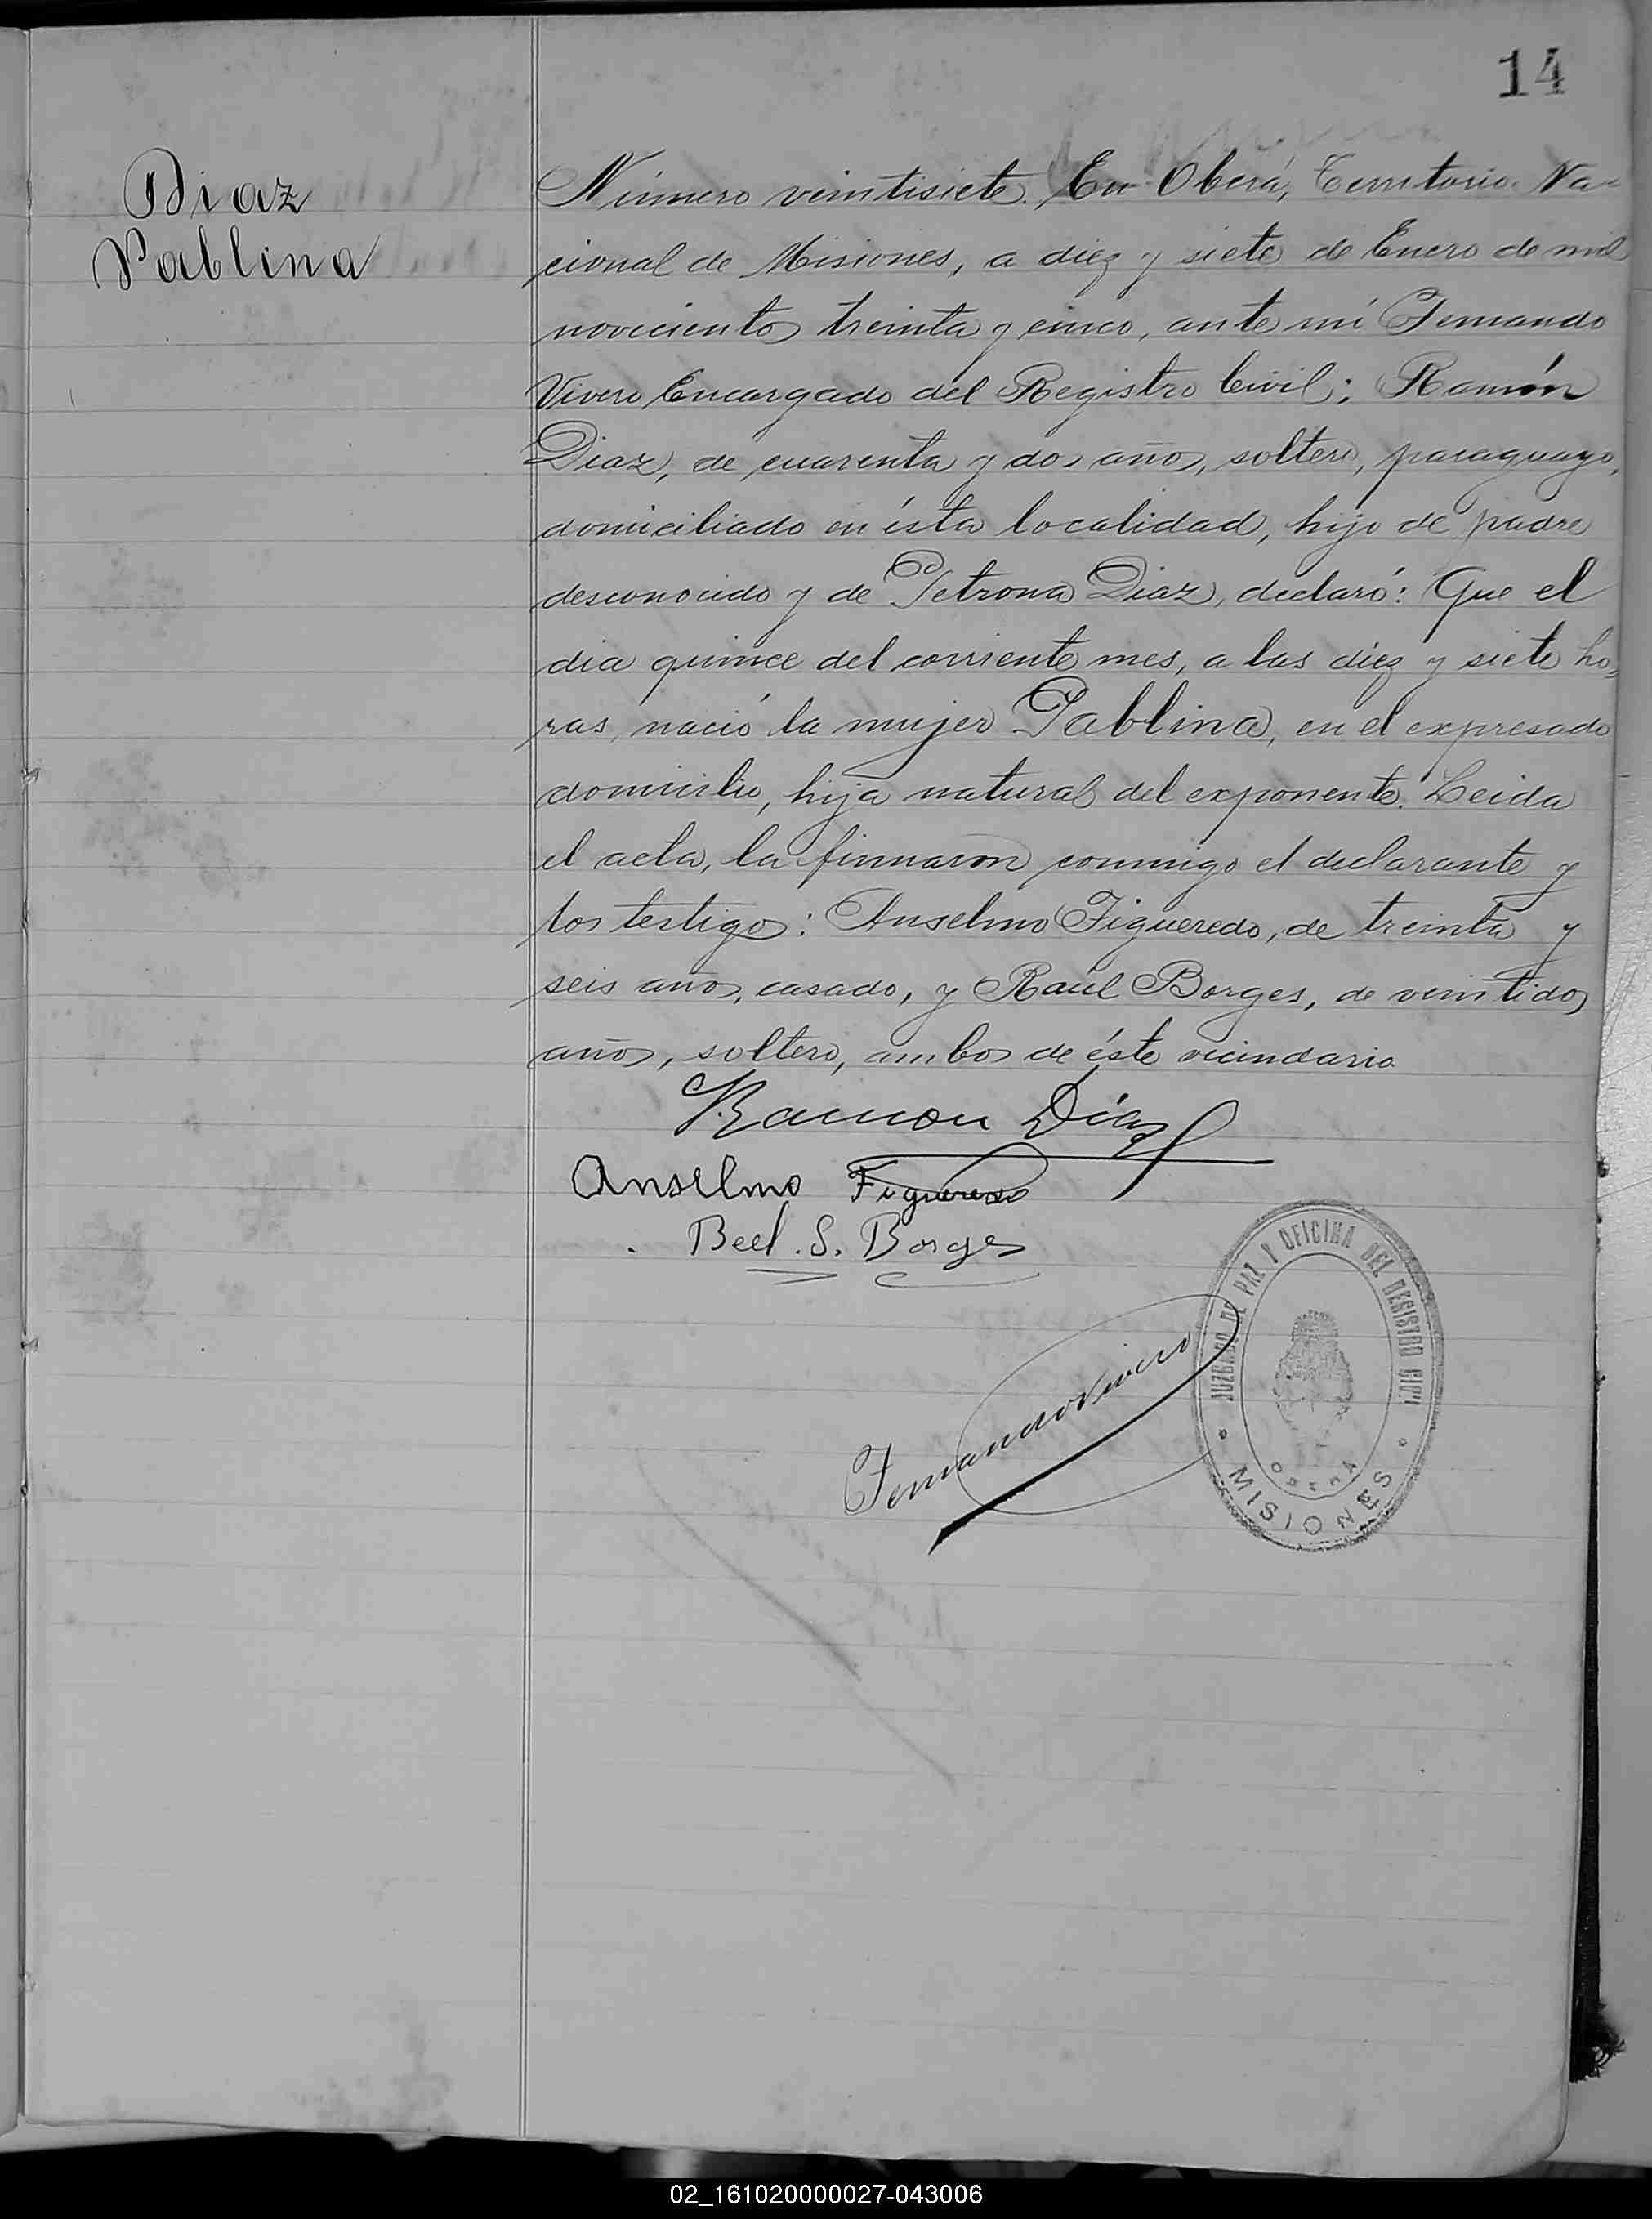 14
Diaz
Pablina
Número veintisiete. En Oberá, Territorio Na-
cional de Misiones, a diez y siete de Enero de mil
noveciento treinta y cinco, ante mí Fernando
Vivero Encargado del Registro Civil; Ramón
Diaz, de cuarenta y dos años, soltero, paraguayo,
domiciliado en ésta localidad, hijo de padre
desconocido y de Petrona Diaz, declaró: Que el
dia quince del corriente mes, a las diez y siete ho-
ras, nació la mujer Pablina, en el expresado
domicilio, hija natural del exponente. Leida
el acta, la firmaron conmigo el declarante y
los testigos: Anselmo Figueredo, de treinta y
seis años, casado, y Raúl Borges, de veintidos
años, soltero, ambos de éste vecindario
Ramon Díaz
Anselmo Figueredo
S. Borges
Fernando Vivero
JUZGADO DE PAZ Y OFICINA DEL REGISTRO CIVIL
OBERÁ
MISIONES
02_161020000027-043006